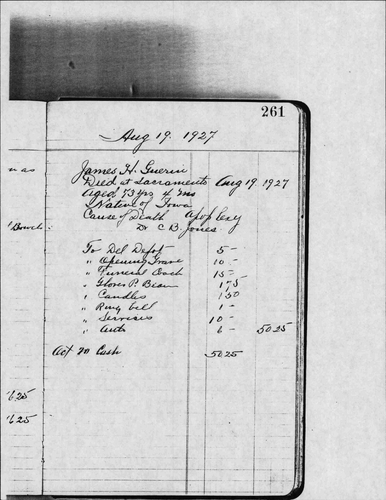 261
Aug 19. 1927
James H. Guerin
Died at Sacramento Aug 19. 1927
Aged 73 yrs 4 ms
Native of Iowa
Cause of Death Apoplexy
Dr C B. Jones
To Del Depot 5-
" Opening Grave 10-
" Funeral Coach 15-
" Gloves P. Bear 1 75
" Candles 1 50
" Ring bell 1-
" Services 10-
" Auto 6- 50 25
Oct 20 Cash 50 25
625
625